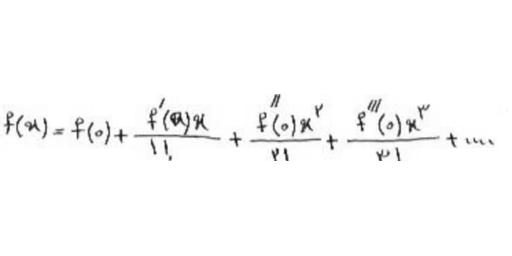 f(x) = f(0) + f′(0)x/۱! + f″(0)x^۲/۲! + f‴(0)x^۳/۳! + ....